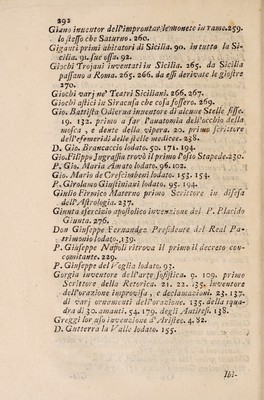 292
Giano inuentor dell'improntar le monete in rame. 259.
lo stesso che Saturno. 260.
Giganti primi abitatori di Sicilia. 90. in tutta la Si-
cilia. 91. sue ossa. 92.
Giochi Trojani inventati in Sicilia. 265. da Sicilia
passano a Roma. 265. 266. da essi derivate le giostre
270.
Giochi varj ne' Teatri Siciliani. 266. 267.
Giochi astici in Siracusa che cosa fossero. 269.
Gio. Battista Odierna inuentor di alcune Stelle fisse.
19. 132. primo a far l'anatomia dell'occhio della
mosca, e dente della vipera. 20. primo scrittore
dell'efemeridi delle stelle medicee. 238.
D. Gio. Brancaccio lodato. 50. 171. 194.
Gio. Filippo Ingrassia trovò il primo l'osso Stapede. 230.
P. Gio. Maria Amato lodato. 96. 102.
Gio. Mario de Crescimbeni lodato. 153. 154.
P. Girolamo Giustiniani lodato. 95. 194.
Giulio Firmico Materno primo Scrittore in difesa
dell'Astrologia. 237.
Giunta esercizio apostolico invenzione del P. Placido
Giunta. 276.
Don Giuseppe Fernandez Presidente del Real Pa-
trimonio lodato. 139.
P. Giuseppe Napoli ritrova il primo il decreto con-
comitante. 229.
P. Giuseppe del Voglia lodato. 93.
Gorgia inventore dell'arte sofistica. 9. 109. primo
Scrittore della Retorica. 21. 22. 135. inventore
dell'orazione improvisa, e declamazioni. 23. 137.
di varj ornamenti dell'orazione. 135. della squa-
dra di 30. amanti. 54. 179. degli Antitesi. 138.
Greggi lor uso invenzione d'Aristeo. 4. 82.
D. Gutterra la Valle lodato. 155.